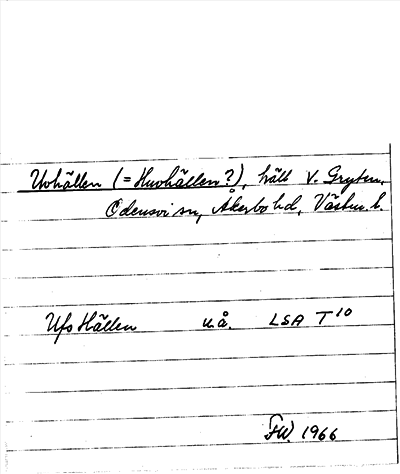 Uvhällen (= Huvhällen?), häll V. Gryten,
Odensvi sn, Åkerbo hd, Västm. l.
Ufs Hällen u.å. LSA T¹⁰
FW. 1966